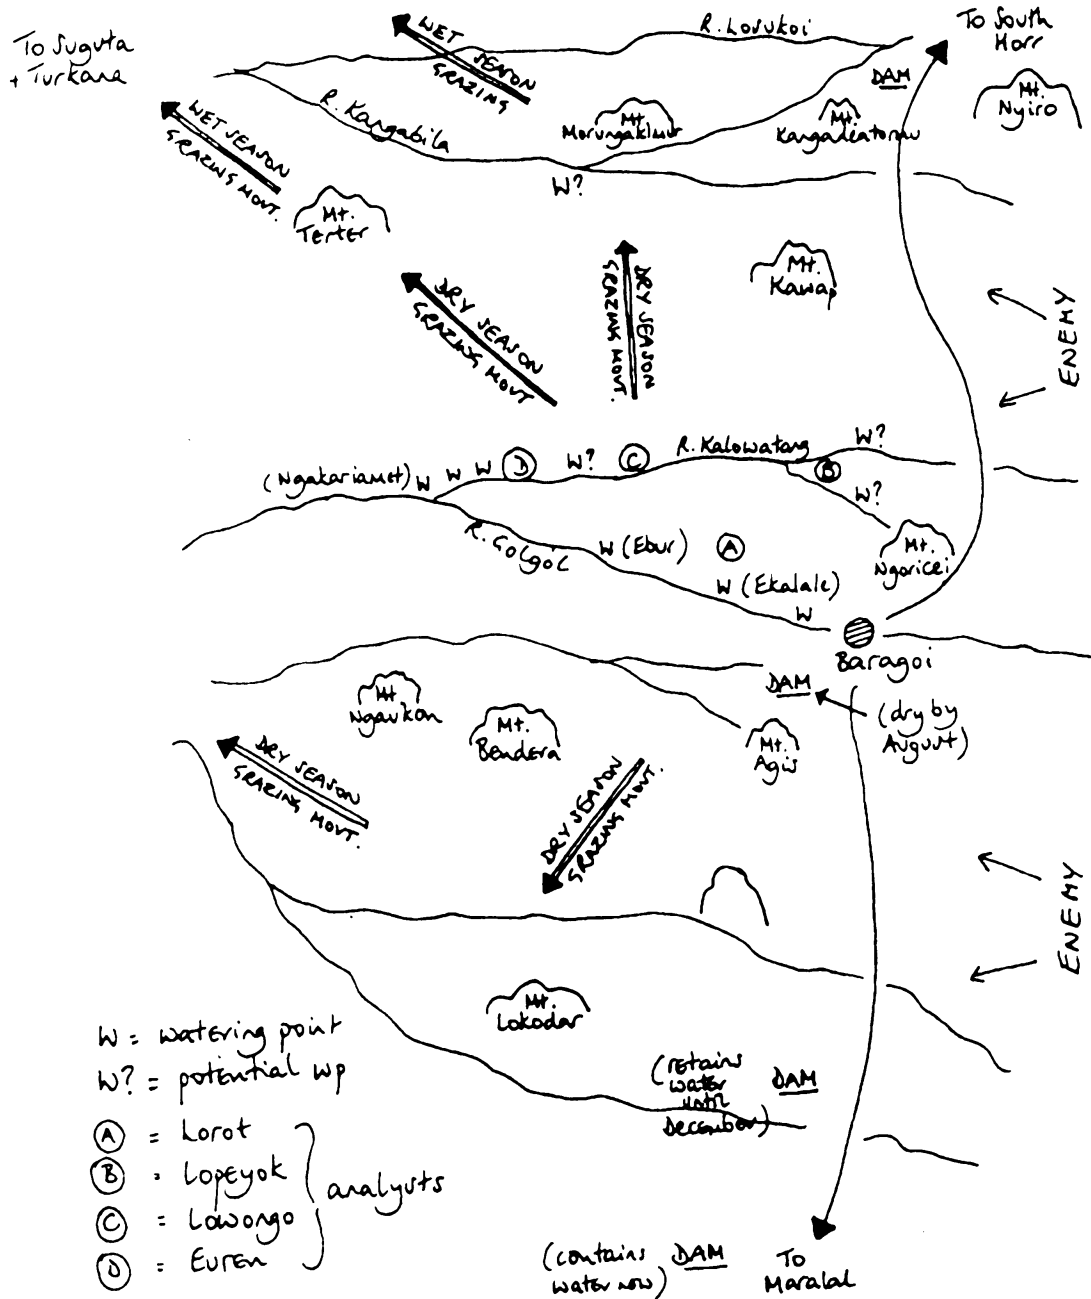 To Suguta
+ Turkana
WET SEASON
GRAZING
R. Losukoi
To South
Horr
DAM
Mt.
Nyiro
WET SEASON
GRAZING MOVT.
R. Kangabila
Mt.
Morungakimur
Mt.
W?
Mt.
Terter
DRY SEASON
GRAZING MOVT
DRY SEASON
GRAZING MOVT.
Mt.
Kawap
ENEMY
(Ngakariamet) W W W D W? C R. Kalowatang W?
B
W?
R. Golgol
W (Ebur) A
Mt.
Ngoricei
W (Ekalale)
W
Baragoi
DAM
(dry by
August)
Mt
Ngaukon
Mt.
Bendera
Mt.
Agis
DRY SEASON
GRAZING MOVT.
DRY SEASON
GRAZING MOVT.
ENEMY
Mt.
Lokodar
(retains
water
until
December)
DAM
W = watering point
W? = potential wp
A = Lorot
B = Lopeyok
C = Lowongo
D = Euren
analysts
(contains
water now)
DAM
To
Maralal